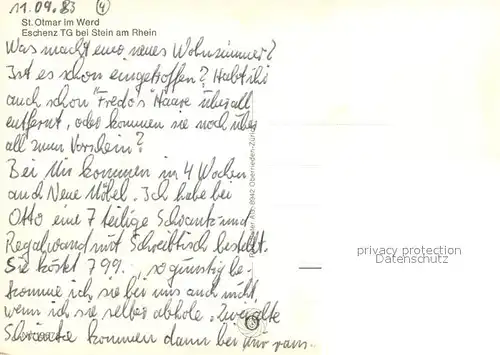 11.09.83 4
St. Otmar im Werd
Eschenz TG bei Stein am Rhein
Was macht euer neues Wohnzimmer?
Ist es schon eingetroffen? Habt ihr
auch schon "Fredos" Haare überall
entfernt, oder kommen sie noch über
all zum Vorschein?
Bei Uns kommen in 4 Wochen
auch Neue Möbel. Ich habe bei
Otto eine 7 teilige Schrank und
Regalwand mit Schreibtisch bestellt.
Sie kostet 799.-, so günstig be-
komme ich sie bei uns auch nicht,
wenn ich sie selber abhole.
Schränke kommen dann bei mir raus.
8942 Oberrieden-Zürich
privacy protection
Datenschutz